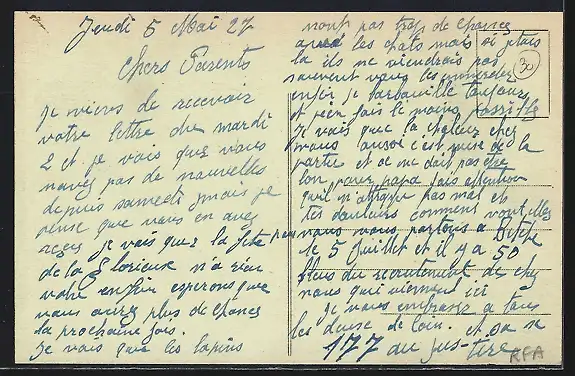 Jeudi 5 Mai 27
Chers Parents
Je viens de recevoir
votre lettre du mardi
2 et je vois que vous
navez pas de nouvelles
depuis samedi mais je
pense que vous en avez
reçu je vois que la fete
de la Glorieuse n'a rien
enfin esperons que
vous aurez plus de chance
la prochaine fois.
Je vois que les lapins
nont pas trop de chance
avec les chats mais si jetais
la ils ne viendrais pas
souvent vous les
enfin je barbouille toujours
et j'en fais le moins possible
Je vois que la chaleur chez
vous aussi c'est mise de la
partie et ce ne doit pas être
bon pour papa fais attention
qu'il n'attrape pas mal et
tes douleurs comment vont elles
nous nous partons a Bitche
le 5 Juillet et il y a 50
bleus du recrutement de chez
nous qui viennent ici
je vous embrasse a tous
les deux de loin. et ça
177 au jus-
30
RFA